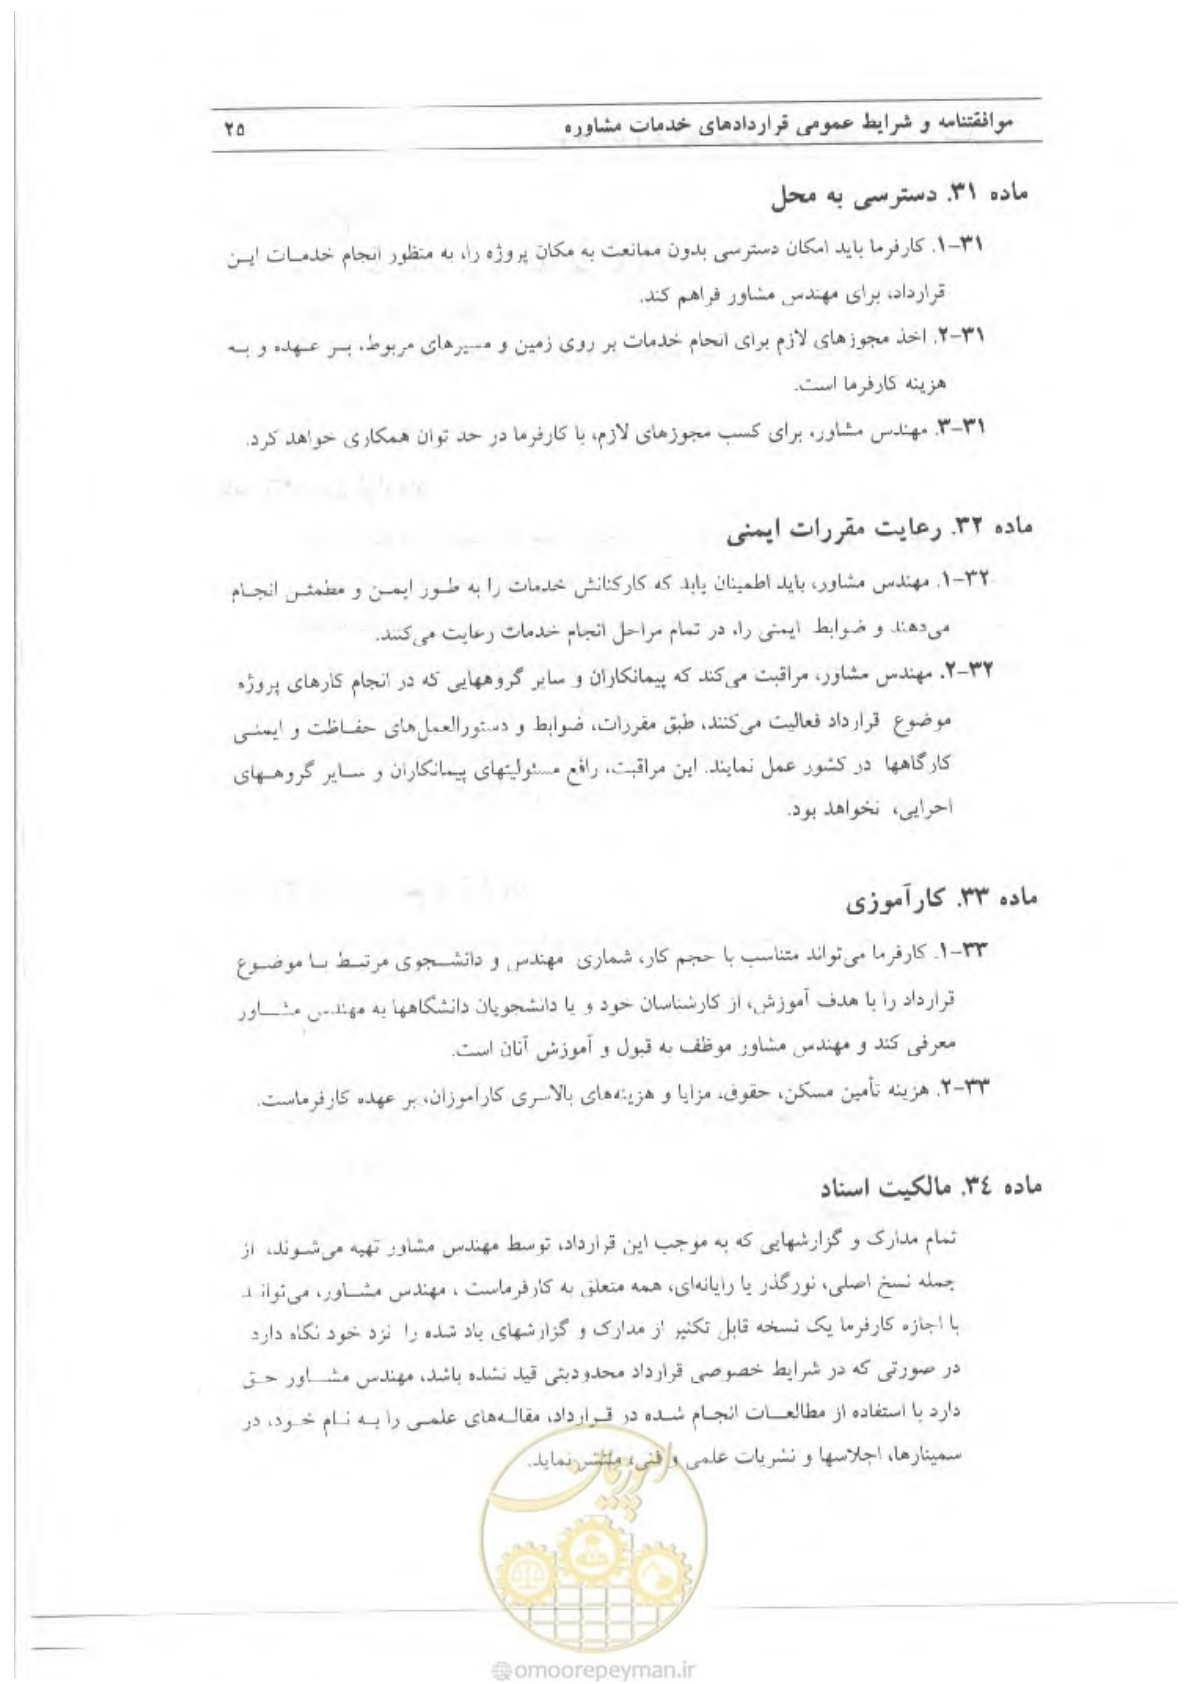 موافقتنامه و شرایط عمومی قراردادهای خدمات مشاوره
۲۵
ماده ۳۱. دسترسی به محل
۳۱-۱. کارفرما باید امکان دسترسی بدون ممانعت به مکان پروژه را، به منظور انجام خدمات این
قرارداد، برای مهندس مشاور فراهم کند.
۳۱-۲. اخذ مجوزهای لازم برای انجام خدمات بر روی زمین و مسیرهای مربوط، بر عهده و به
هزینه کارفرما است.
۳۱-۳. مهندس مشاور، برای کسب مجوزهای لازم، با کارفرما در حد توان همکاری خواهد کرد.
ماده ۳۲. رعایت مقررات ایمنی
۳۲-۱. مهندس مشاور، باید اطمینان یابد که کارکنانش خدمات را به طور ایمن و مطمئن انجام
می‌دهند و ضوابط ایمنی را، در تمام مراحل انجام خدمات رعایت می‌کنند.
۳۲-۲. مهندس مشاور، مراقبت می‌کند که پیمانکاران و سایر گروههایی که در انجام کارهای پروژه
موضوع قرارداد فعالیت می‌کنند، طبق مقررات، ضوابط و دستورالعمل‌های حفاظت و ایمنی
کارگاهها در کشور عمل نمایند. این مراقبت، رافع مسئولیتهای پیمانکاران و سایر گروههای
اجرایی، نخواهد بود.
ماده ۳۳. کارآموزی
۳۳-۱. کارفرما می‌تواند متناسب با حجم کار، شماری مهندس و دانشجوی مرتبط با موضوع
قرارداد را با هدف آموزش، از کارشناسان خود و یا دانشجویان دانشگاهها به مهندس مشاور
معرفی کند و مهندس مشاور موظف به قبول و آموزش آنان است.
۳۳-۲. هزینه تأمین مسکن، حقوق، مزایا و هزینه‌های بالاسری کارآموزان، بر عهده کارفرماست.
ماده ۳٤. مالکیت اسناد
تمام مدارک و گزارشهایی که به موجب این قرارداد، توسط مهندس مشاور تهیه می‌شوند، از
جمله نسخ اصلی، نورگذر یا رایانه‌ای، همه متعلق به کارفرماست ، مهندس مشاور، می‌تواند
با اجازه کارفرما یک نسخه قابل تکثیر از مدارک و گزارشهای یاد شده را نزد خود نگاه دارد
در صورتی که در شرایط خصوصی قرارداد محدودیتی قید نشده باشد، مهندس مشاور حق
دارد با استفاده از مطالعات انجام شده در قرارداد، مقاله‌های علمی را به نام خود، در
سمینارها، اجلاسها و نشریات علمی و فنی، منتشر نماید.
امورپیمان
@omoorepeyman.ir